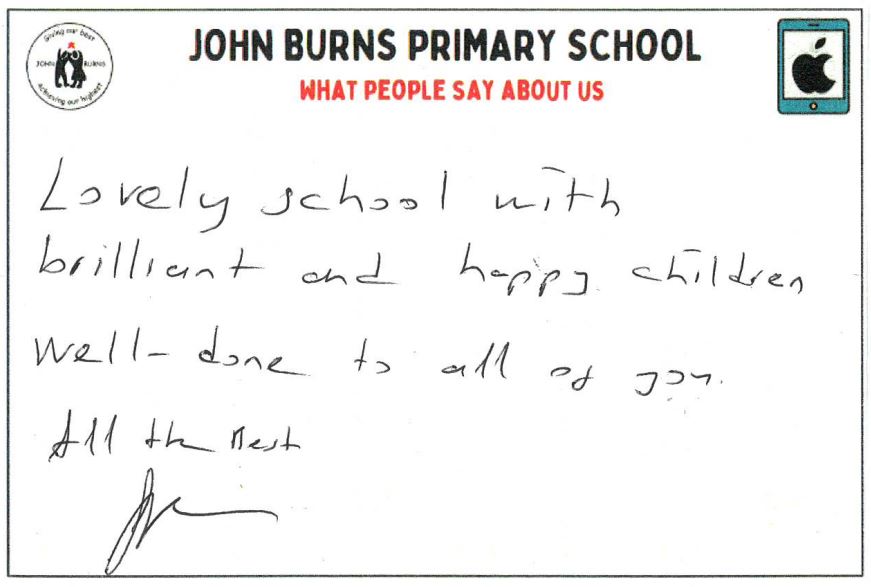 Giving our best
JOHN BURNS
achieving our highest
JOHN BURNS PRIMARY SCHOOL
WHAT PEOPLE SAY ABOUT US
Lovely school with
brilliant and happy children
Well-done to all of you.
All the Best